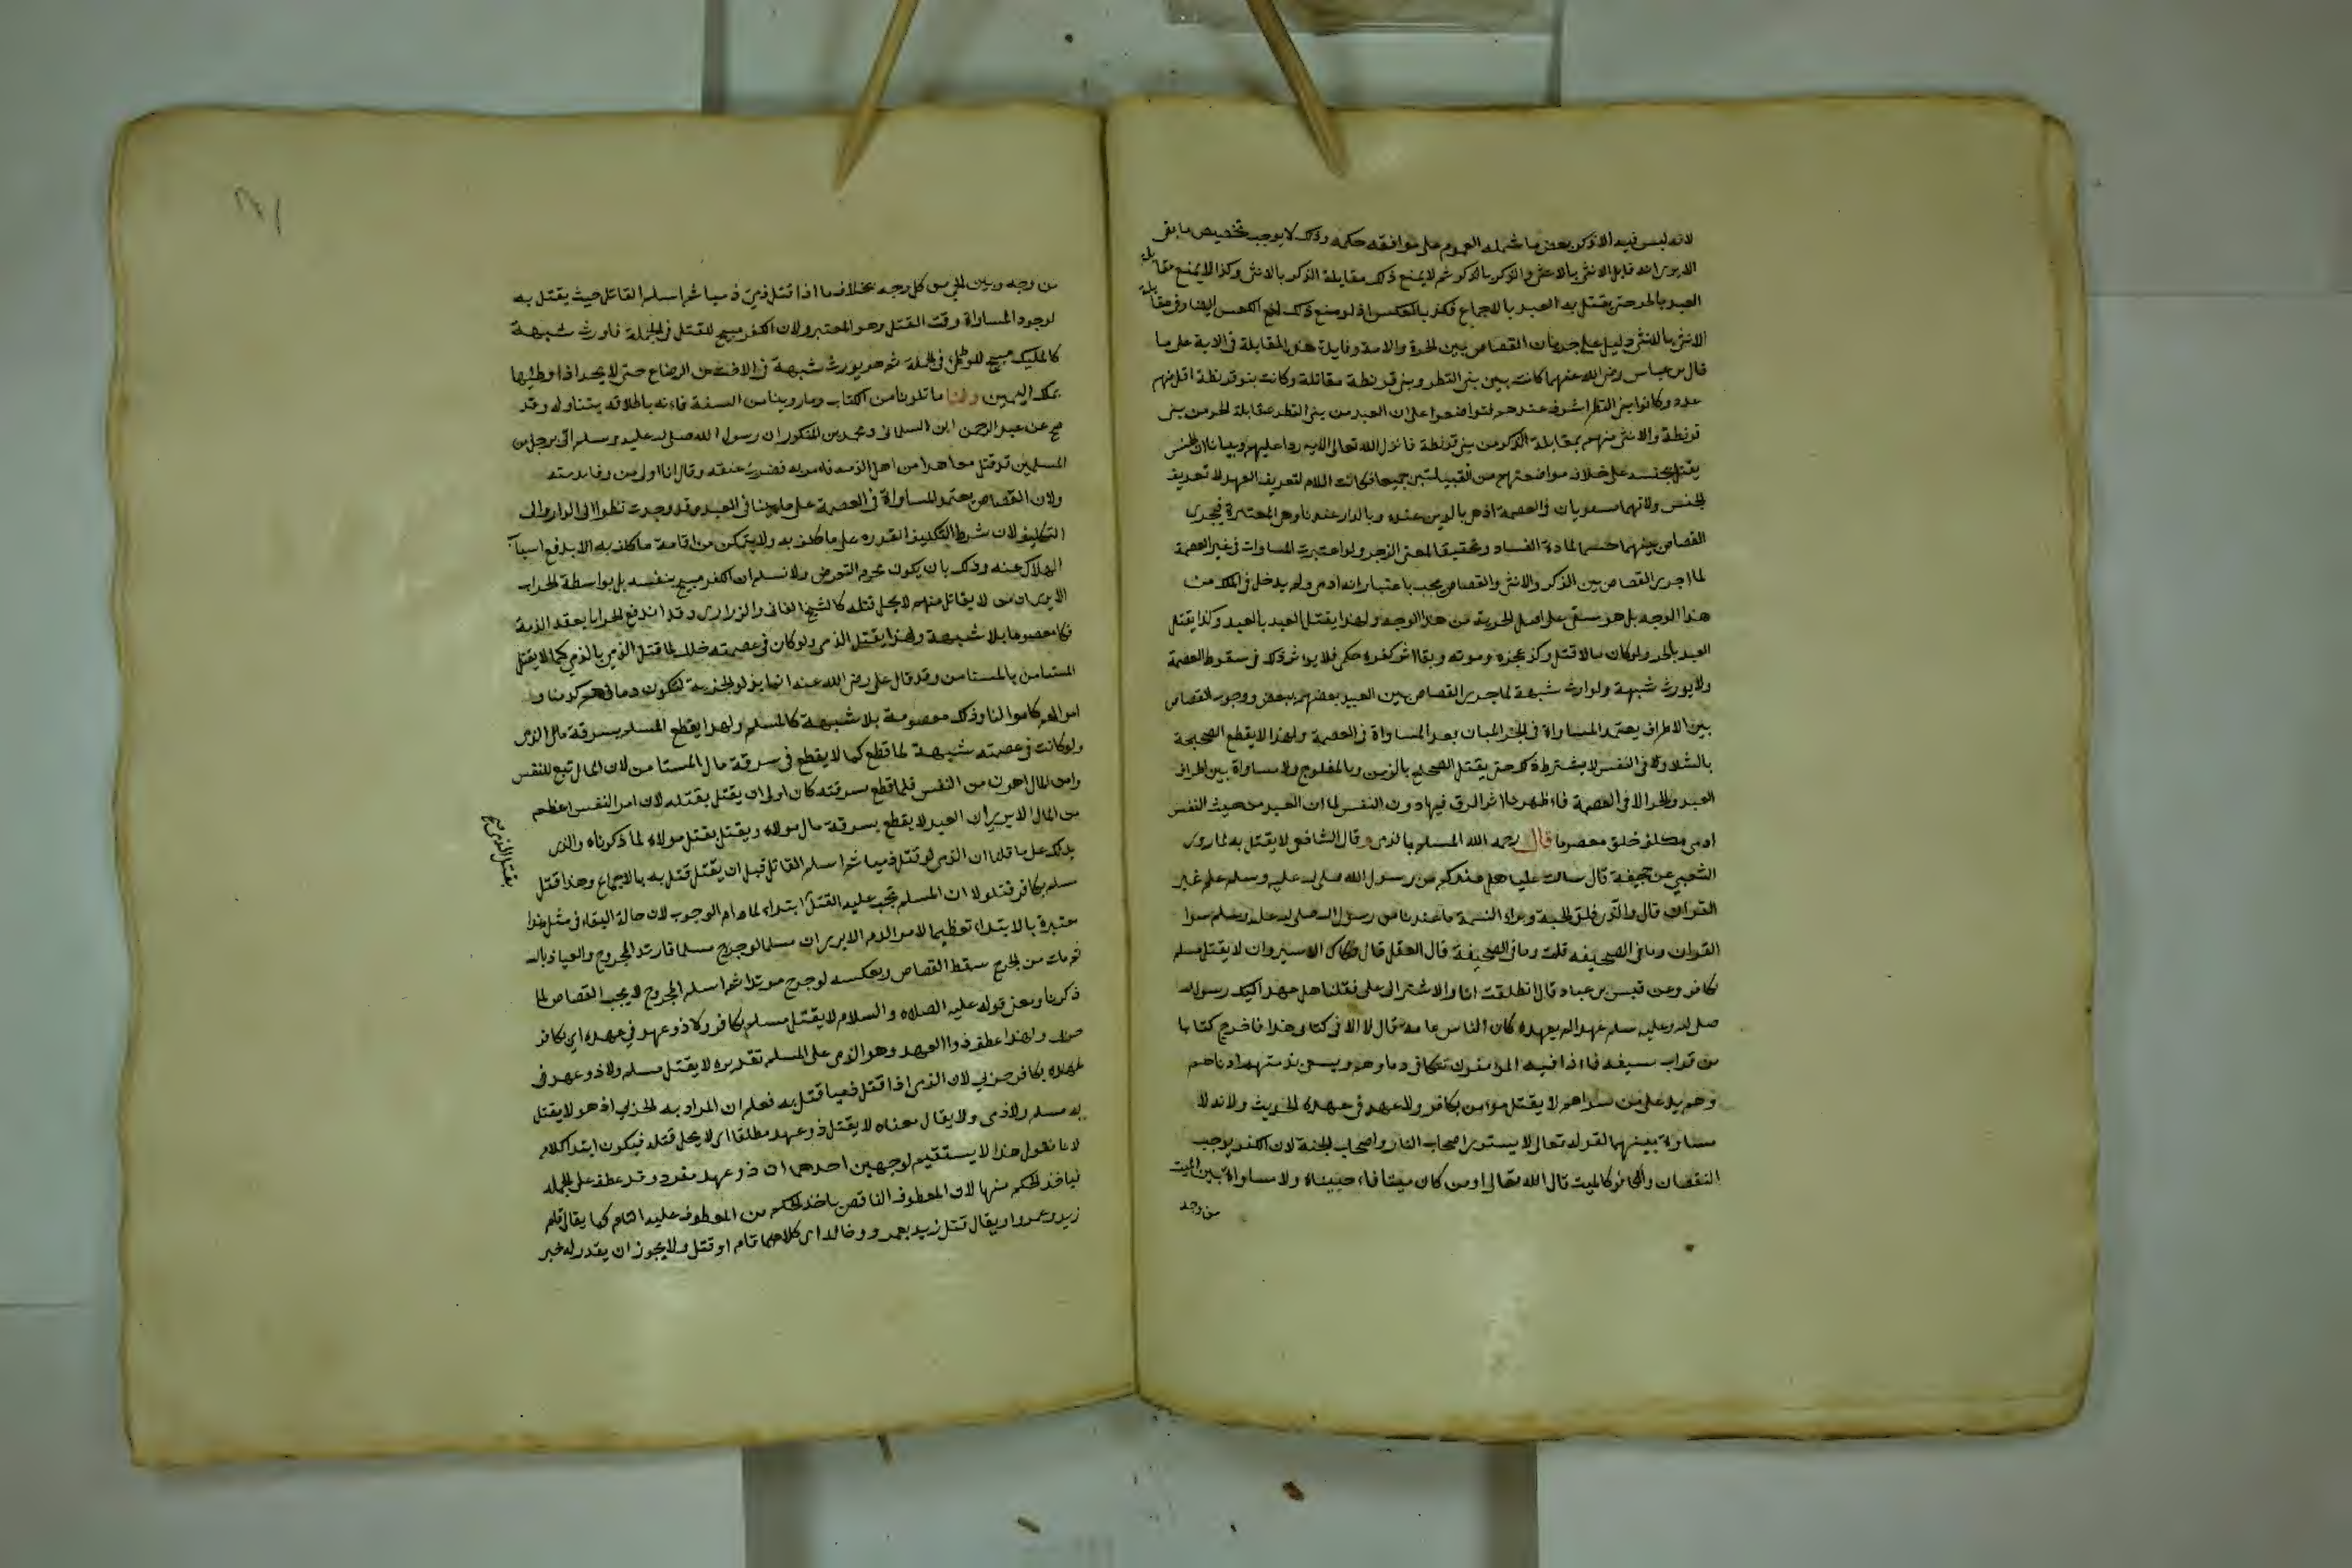 لانه ليس فيه الا ذكر بعض ما شمله العموم على موافقة حكمه وذلك لا يوجب تخصيص ما بقى
الا يرى انه قابل الانثى بالانثى والذكر بالذكر ثم لا يمنع ذلك مقابلة الذكر بالانثى وكذا لا يمنع مقابلة
العبد بالحر حتى يقتل به العبد بالاجماع فكذا بالعكس اذ لو منع ذلك لمنع العكس ايضا وفى مقابلة
الانثى بالانثى دليل على جريان القصاص بين الحرة والامة وفايدة هذه المقابلة فى الاية على ما
قال بن عباس رضى الله عنهما كانت بين بنى النظر وبنى قرنظة مقاتلة وكانت بنو قرنظة اقل منهم
عدد وكانوا بنى النظر اشرف عندهم فتواضعوا على ان العبد من بنى النظر بمقابلة الحر من بنى
قرنظة والانثى منهم بمقابلة الذكر من بنى قرنظة فانزل الله تعالى الاية ردا عليهم وبيانا ان الجنس
يقتل بجنسه على خلاف مواضعتهم من القبيلتين جميعا فكانت اللام لتعريف العهد لا تعريف
الجنس ولانهما مستويان فى العصمة اذ هى بالدين عنده وبالدار عندنا وهى المعتبرة فيجرى
القصاص بينهما حسما لمادة الفساد وتحقيقا لمعنى الزجر ولو اعتبرت المساوات فى غير العصمة
لما اجرى القصاص بين الذكر والانثى والقصاص يجب باعتبار انه ادمى ولم يدخل فى الملك من
هذا الوجه بل هو مبقى على اصل الحرية من هذا الوجه ولهذا يقتل العبد بالعبد وكذا يقتل
العبد بالحر ولو كان مالا لما قتل وكذا عجزه وموته وبقا اثر كفره حكمى فلا يوثر ذلك فى سقوط العصمة
ولا يورث شبهة ولو اورث شبهة لما جرى القصاص بين العبيد بعضهم ببعض ووجوب القصاص
بين الاطراف يعتمد المساواة فى الجزء المبان بعد المساواة فى العصمة ولهذا لا يقطع الصحيحة
بالشلا وفى النفس لا يشترط ذلك حتى يقتل الصحيح بالزمن وبالمفلوج ولا مساواة بين اطراف
العبد والحر الا فى العصمة فاظهرنا اثر الرق فيها دون النفس لما ان العبد من حيث النفس
ادمى مكلف خلق معصوما قال رحمه الله المسلم بالذمى وقال الشافعى لا يقتل به لما روى
الشعبى عن جحيفة قال سالت عليا هل عندكم من رسول الله صلى الله عليه وسلم علم غير
القران قال والذى فلق الحبة وبراء النسمة ما عندنا من رسول الله صلى الله عليه وسلم سوا
القران وما فى الصحيفه قلت وما فى الصحيفة قال العقل قال وفكاك الاسير وان لا يقتل مسلم
بكافر وعن قيس بن عباد قال انطلقت انا والاشتر الى على فقلنا هل عهد اليك رسول الله
صلى الله وعليه سلم عهدا لم يعهده كان الناس عامة قال لا الا فى كتابى هذا فاخرج كتابا
من قراب سيفه فاذا فيه المومنون تتكافى دماوهم ويسعى بذمتهم ادناهم
وهم يد على من سواهم لا يقتل مومن بكافر ولا عهد فى عهده الحديث ولانه لا
مساواة بينهما لقوله تعالى لا يستوى اصحاب النار واصحاب الجنة لان الكفر يوجب
النقصان والكافر كالميت قال الله تعالى اومن كان ميتا فاحييناه ولا مساواة بين الميت
من وجه
من وجه وبين الحى من كل وجه بخلاف ما اذا قتل ذمى ذميا ثم اسلم القاتل حيث يقتل به
لوجود المساواة وقت القتل وهو المعتبر ولان الكفر مبيح للقتل فى الجملة فاورث شبهة
كالمليك مبيح للوطى فى الجملة ثم هو يورث شبهة فى الاخت من الرضاع حتى لا يحد اذا وطئها
بملك اليمين ولنا ما تلونا من الكتاب وما روينا من السنة فانه باطلاقه يتناوله وقد
صح عن عبد الرحمن ابن السلمانى ومحمد بن المنكور ان رسول الله صلى الله عليه وسلم اتى برجل من
المسلمين قد قتل معاهدا من اهل الذمة فامر به فضرب عنقه وقال انا اولى من وفا بذمته
ولان القصاص يعتمد المساواة فى العصمة على ما بينا فى العبد وقد وجدت نظرا الى الدار والى
التكليف لان شرط التكليف القدره على ما كلف به ولا يتمكن من اقامة ما كلف به الا بدفع اسباب
الهلاك عنه وذلك بان يكون محرم التعرض ولا نسلم ان الكفر مبيح بنفسه بل بواسطة الحراب
الا يرى ان من لا يقاتل منهم لا يحل قتله كالشيخ الفانى والذرارى وقد اندفع الحراب بعقد الذمة
فكان معصوما بلا شبهة ولهذا يقتل الذمى ولو كان فى عصمته خلل لما قتل الذمى بالذمى كما لا يقتل
المستامن بالمستامن وقد قال على رضى الله عنه انما بذلوا الجزية لتكون دماؤهم كدمائنا و
اموالهم كاموالنا وذلك معصومة بلا شبهة كالمسلم ولهذا يقطع المسلم بسرقة مال الذمى
ولو كانت فى عصمته شبهة لما قطع كما لا يقطع فى سرقة مال المستامن لان المال تبع للنفس
وامر المال اهون من النفس فلما قطع بسرقته كان اولى ان يقتل بقتله لان امر النفس اعظم
من المال الا يرى ان العبد لا يقطع بسرقة مال مولاه ويقتل بقتل مولاه لما ذكرناه والذى
يدلك على ما قلنا ان الذمى لو قتل ذميا ثم اسلم القاتل قبل ان يقتل قتل به بالاجماع وهذا قتل
مسلم بكافر فتلولا ان المسلم يجب عليه القتل ابتداء لما دام الوجوب لان حالة البقاء فى مثل هذا
معتبرة بالابتداء تعظيما لامر الدم الا يرى ان مسلما لو جرح مسلما فارتد المجروح والعياذ بالله
ثم مات من الجرح سقط القصاص وبعكسه لو جرح مرتدا ثم اسلم المجروح لا يجب القصاص لما
ذكرنا ومعنى قوله عليه الصلاه والسلام لا يقتل مسلم بكافر ولا ذو عهد فى عهده اى بكافر
حربى ولهذا عطف ذوا العهد وهو الذمى على المسلم تقديره لا يقتل مسلم ولا ذو عهد فى
عهده بكافر حربى لان الذمى اذا قتل ذميا قتل به فعلم ان المراد به الحربى اذ هو لا يقتل
به مسلم ولا ذمى ولا يقال معناه لا يقتل ذو عهد مطلقا اى لا يحل قتله فيكون ابتدا كلام
لانا نقول هذا لا يستقيم لوجهين احدهما ان ذو عهد مفرد وقد عطف على الجمله
فياخذ الحكم منها لان المعطوف الناقص ياخذ الحكم من المعطوف عليه التام كما يقال قام
زيد وعمرو او يقال قتل زيد بعمرو وخالد اى كلاهما قام او قتل ولا يجوز ان يقدر له خبر